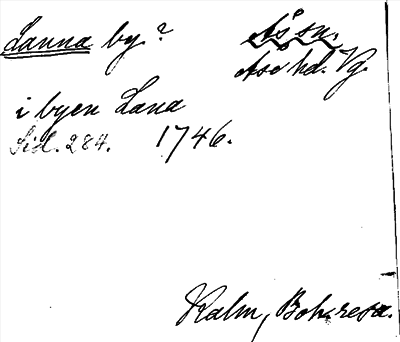 Lanna by?
Ås sn.
Åse hd. Vg.
i byen Lana
Sid. 284. 1746.
Kalm, Boh. resa.